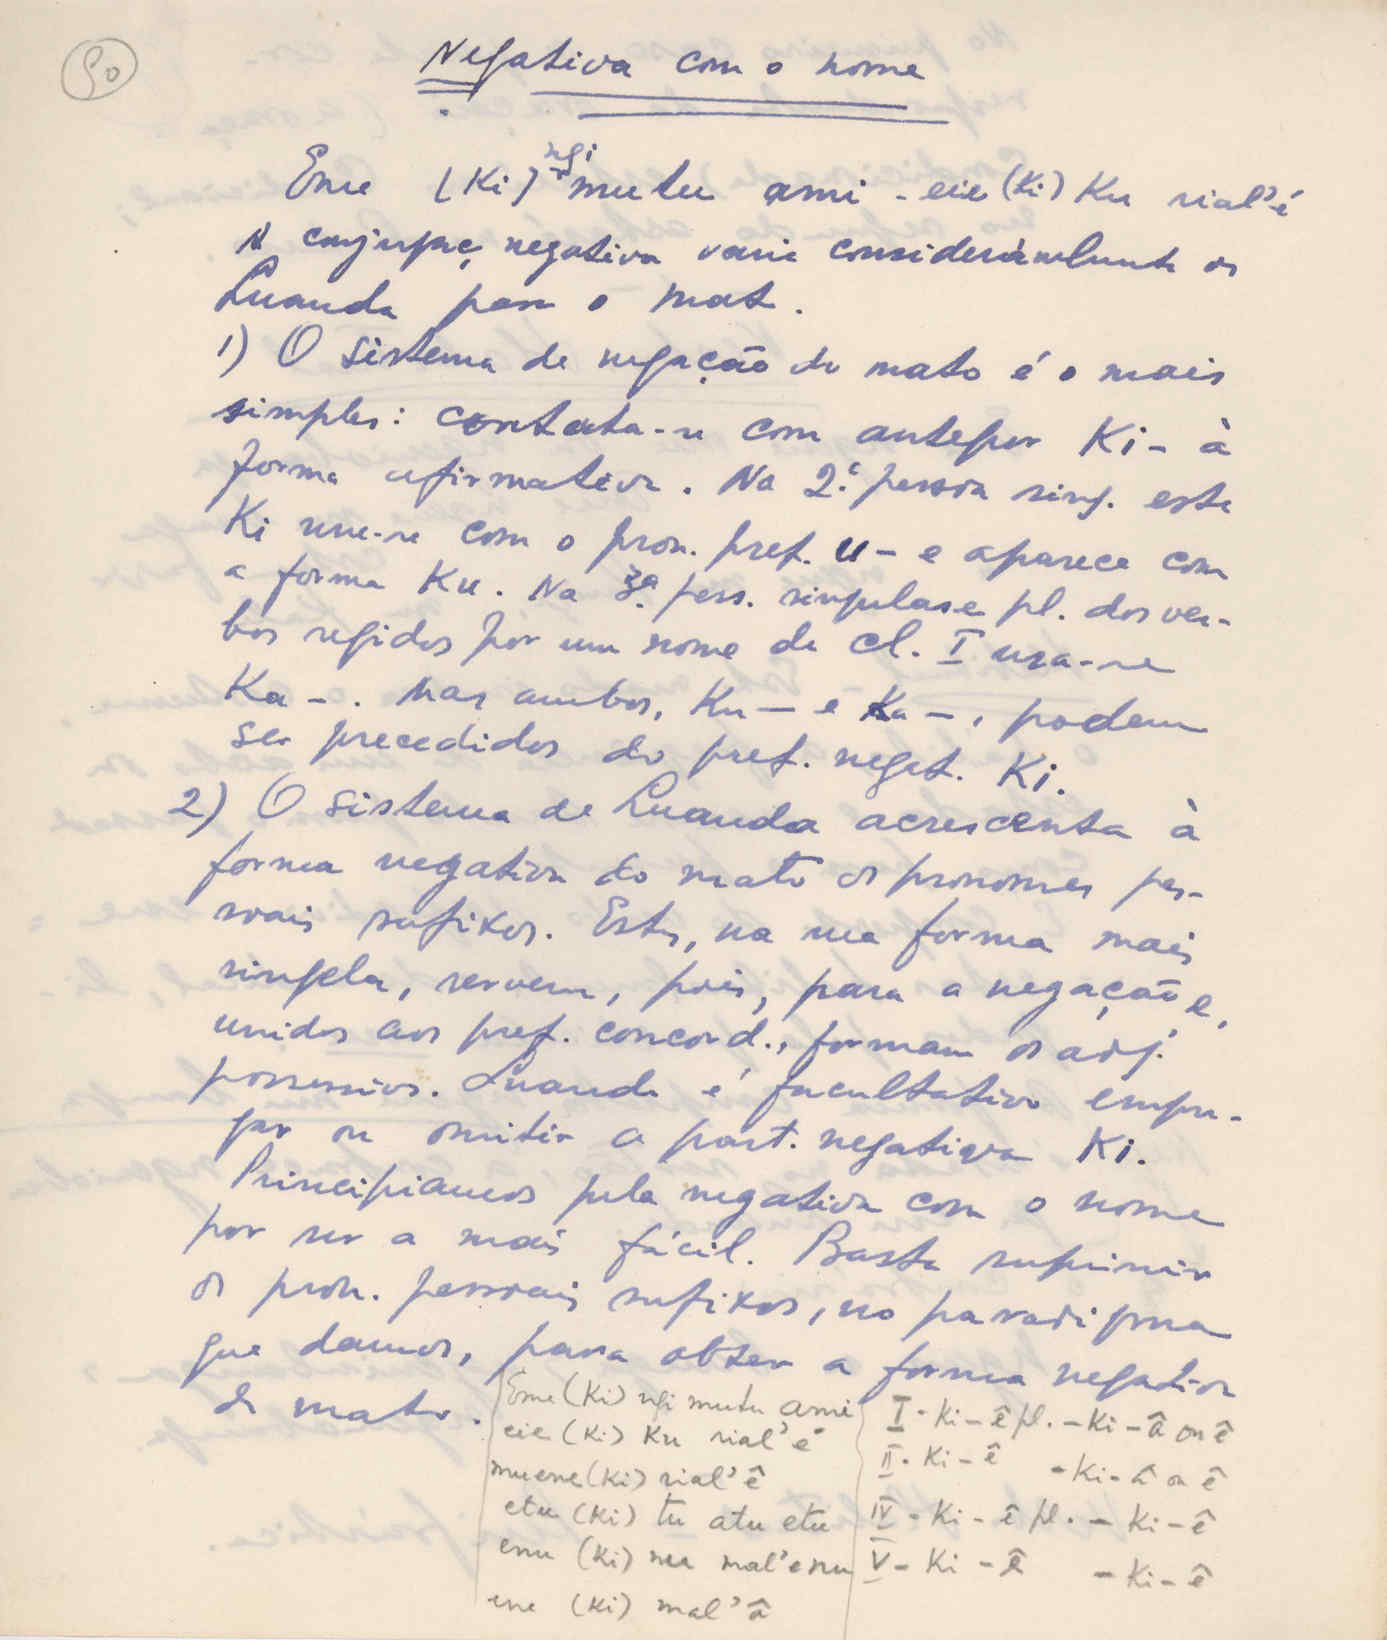 90
Negativa com o nome
Eme (Ki) ngi mutu ami - eie (Ki) Ku rial'é
A conjugaç negativa varia consideravelmente de
Luanda para o mato.
1) O sistema de negação do mato é o mais
simples: contata-se com antepor Ki- à
forma afirmativa. Na 2.ª pessoa sing. este
Ki une-se com o pron. pref. u- e aparece com
a forma Ku. Na 3.ª pess. singular e pl. dos ver-
bos regidos por um nome da cl. I usa-se
Ka-. Mas ambos, Ku- e Ka-, podem
ser precedidos do pref. negat. Ki.
2) O sistema de Luanda acrescenta à
forma negativa do mato os pronomes pes-
soais sufixos. Estes, na sua forma mais
singela, servem, pois, para a negação e,
unidos aos pref. concord., formam os adj.
possessivos. Luanda é facultativo empre-
gar ou omitir a part. negativa Ki.
Principiamos pela negativa com o nome
por ser a mais fácil. Basta suprimir
os pron. pessoais sufixos, no paradigma
que damos, para obter a forma negativa
do mato.
Eme (Ki) ngi mutu ami
eie (Ki) Ku rial'é
muene (Ki) rial'ê
etu (Ki) tu atu etu
enu (Ki) nu mal'enu
ene (Ki) mal'â
I - Ki - ê pl. - Ki - â ou ê
II - Ki - ê - Ki - â ou ê
IV - Ki - ê pl. - Ki - ê
V - Ki - ê - Ki - ê